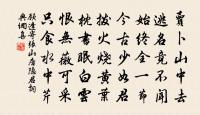 賣卜山中去
逃名竟不聞
始終全一節
今古少如君
撥火燒黃葉
枕書眠白雲
恨無薇可采
只食水中芹
顧逢寄張山居隱君詩